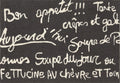 Bon appétit!!! Tarte
crêpes et gale
Aujourd' Soupe de Po
Soupe du jour ou
Fettucine au chèvre et Tom